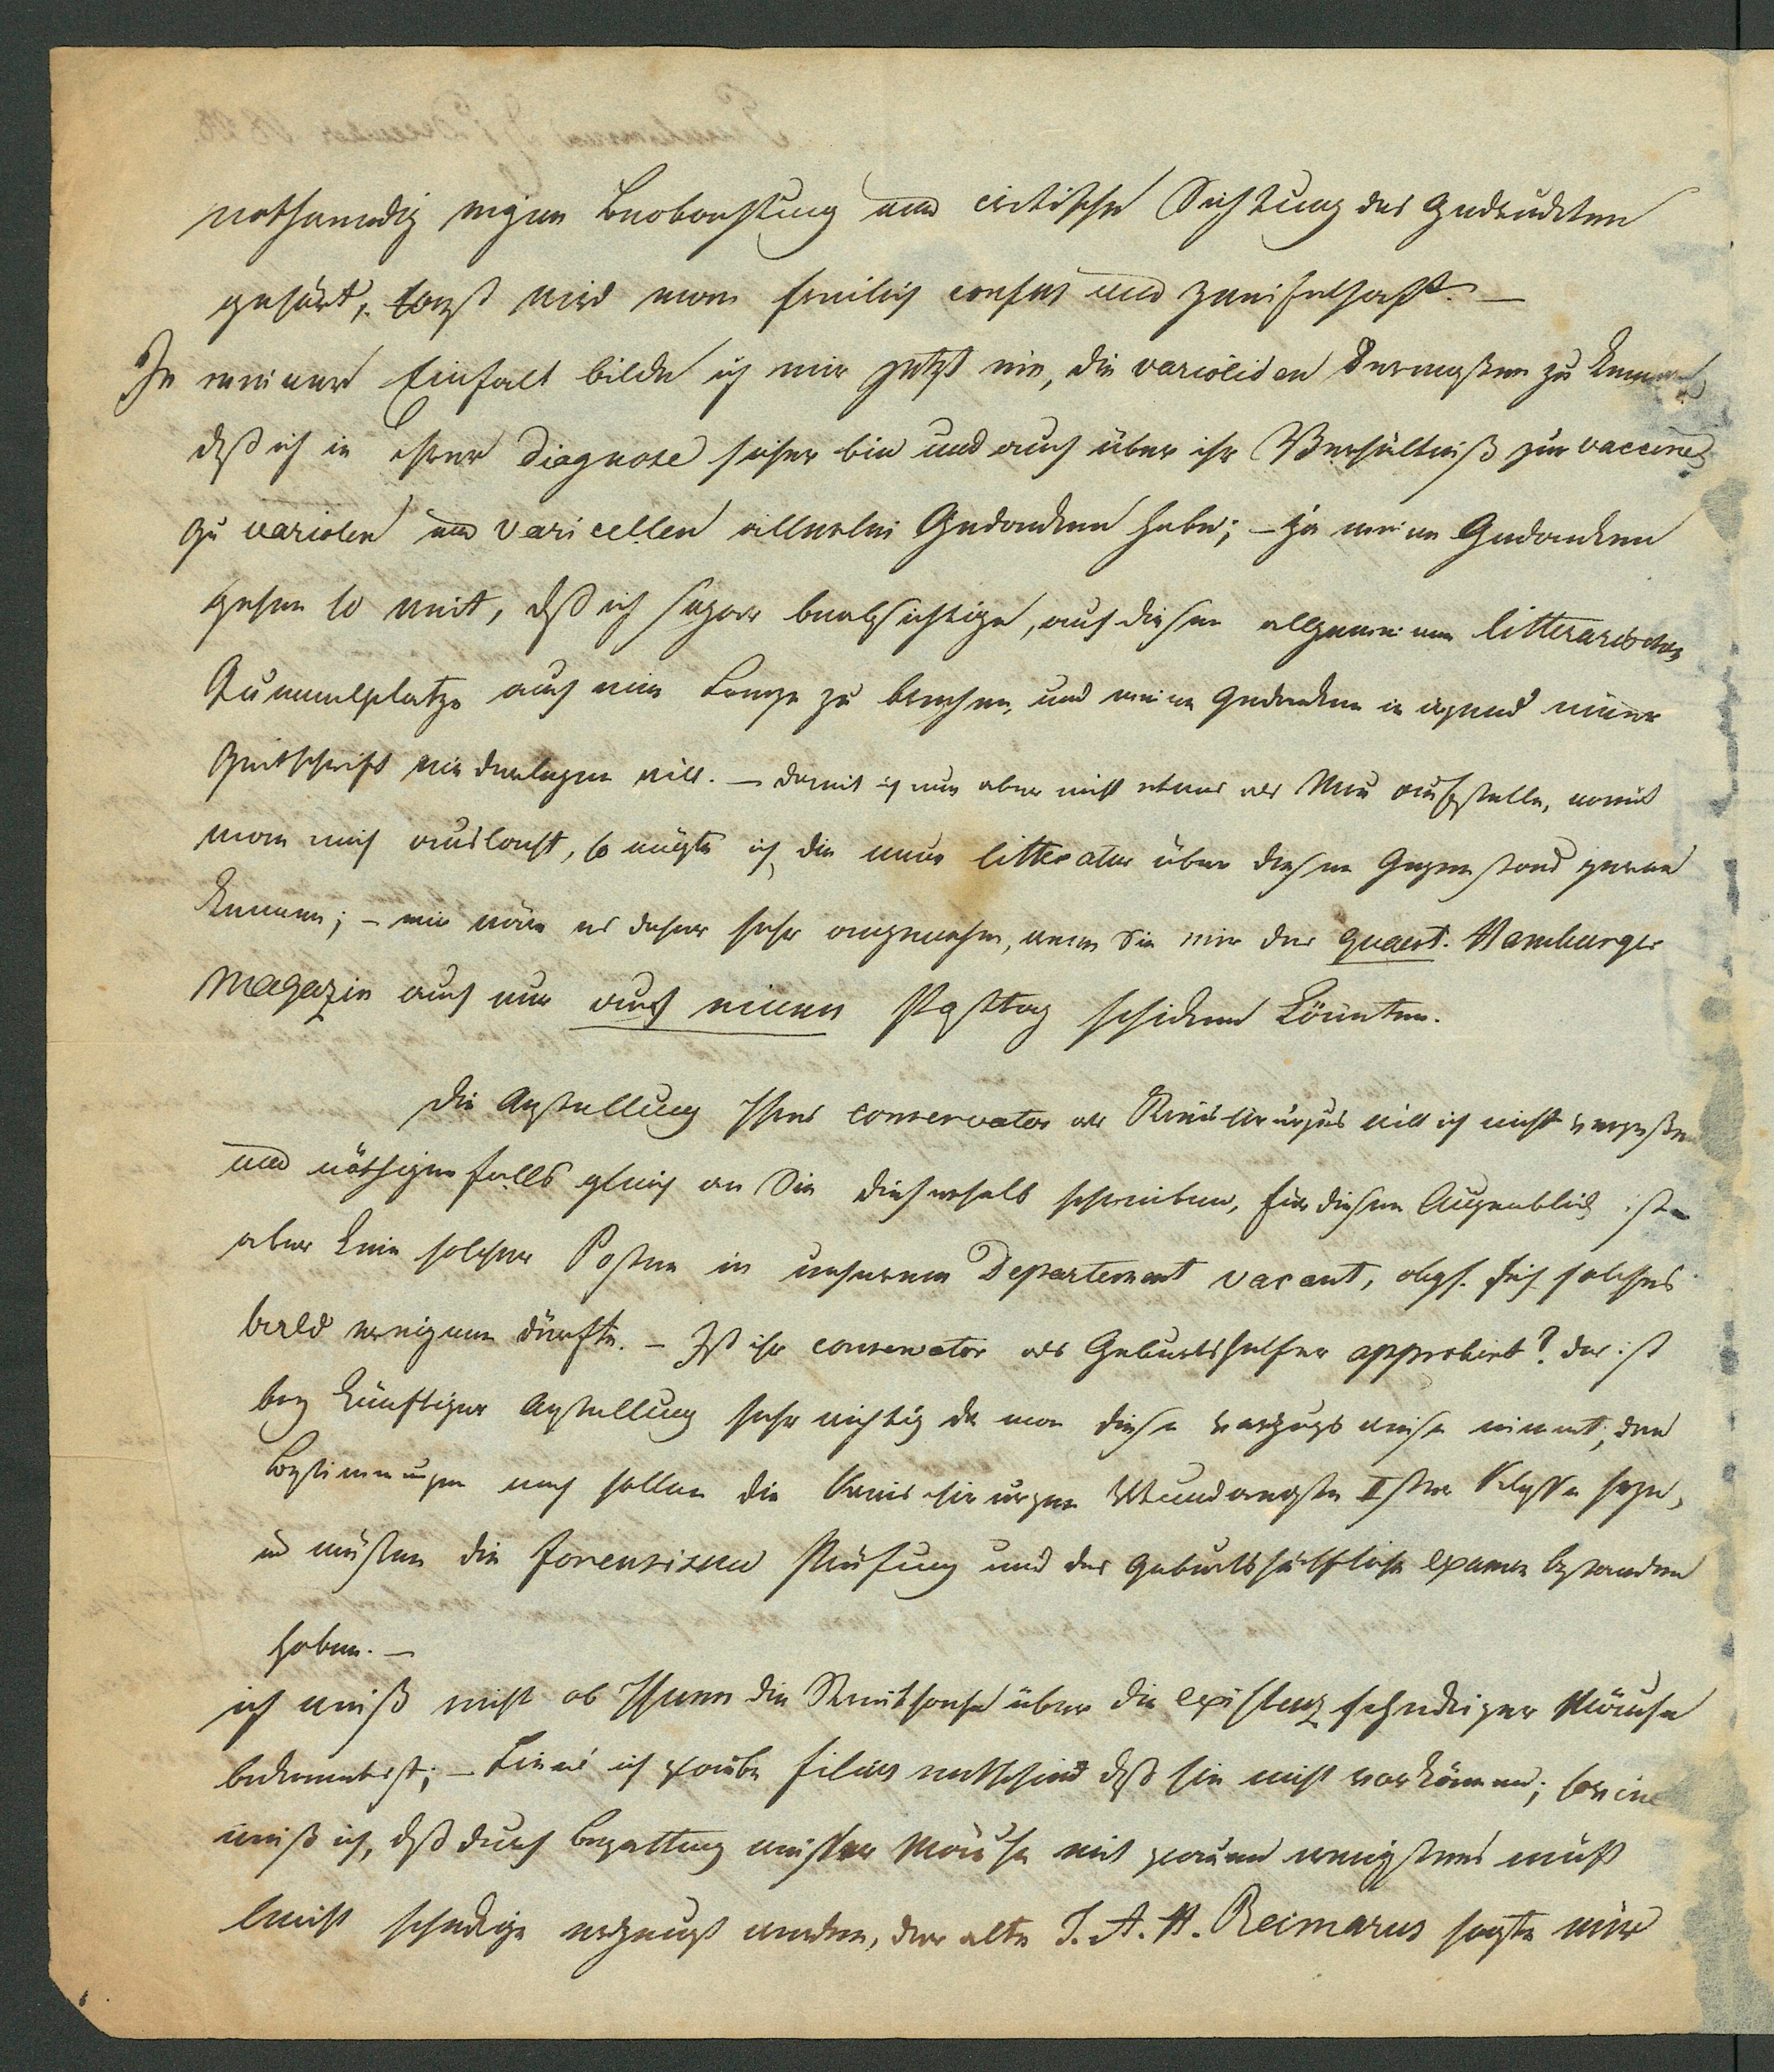 nothwendig eigene Beobachtung und critische Sichtung des Gedruckten
gehört, sonst wird man freilich confus und zweifelhaft. —
In meiner Einfalt bilde ich mir jetzt ein, die varioliden dermaßen zu kennen
daß ich in ihrer Diagnose sicher bin und auch über ihr Verhältniß zur vaccine,
zu variolen und varicellen allerlei Gedanken habe; — ja meine Gedanken
gehen so weit, daß ich sogar beabsichtige, auf diesem allgemeinen litterarischen
Tummelplatze auch eine Lanze zu brechen, und meine Gedanken in irgend einer
Zeitschrift niederlegen will. — Damit ich nun aber nicht etwas als Neu aufstelle, womit
man mich auslacht, so mögte ich die neue litteratur über diesen Gegenstand gerne
kennen; — mir wäre es daher sehr angenehm, wenn Sie mir das quaest. Hamburger
Magazin auch nur auf einen Posttag schicken könnten.
Die Anstellung Ihres conservator als Kreischirurgus will ich nicht vergeßen
und nöthigenfalls gleich an Sie dieserhalb schreiben, für diesen Augenblick ist
aber kein solcher Posten in unserem Departement vacant, obgl. sich solches
bald ereignen dürfte. — Ist ihr conservator als Geburtshelfer approbirt? das ist
bey künftiger Anstellung sehr wichtig da man diese vorzugsweise nimmt; den
Bestimmungen nach sollen die Kreischirurgen Wundärzte Ister Klasse seyn,
u müssen die forensischen Prüfung und das geburtshülfliche Examen bestanden
haben. —
ich weiß nicht ob Ihnen die Streitsache über die Existenz scheckiger Mäuse
bekannt ist; — Linné ich glaube filius entschied daß sie nicht vorkämen;
weiß ich, daß durch Begattung weißer Mäuse mit grauen wenigstens nicht
leicht scheckige erzeugt werden, der alte J. A. H. Reimarus sagte mir